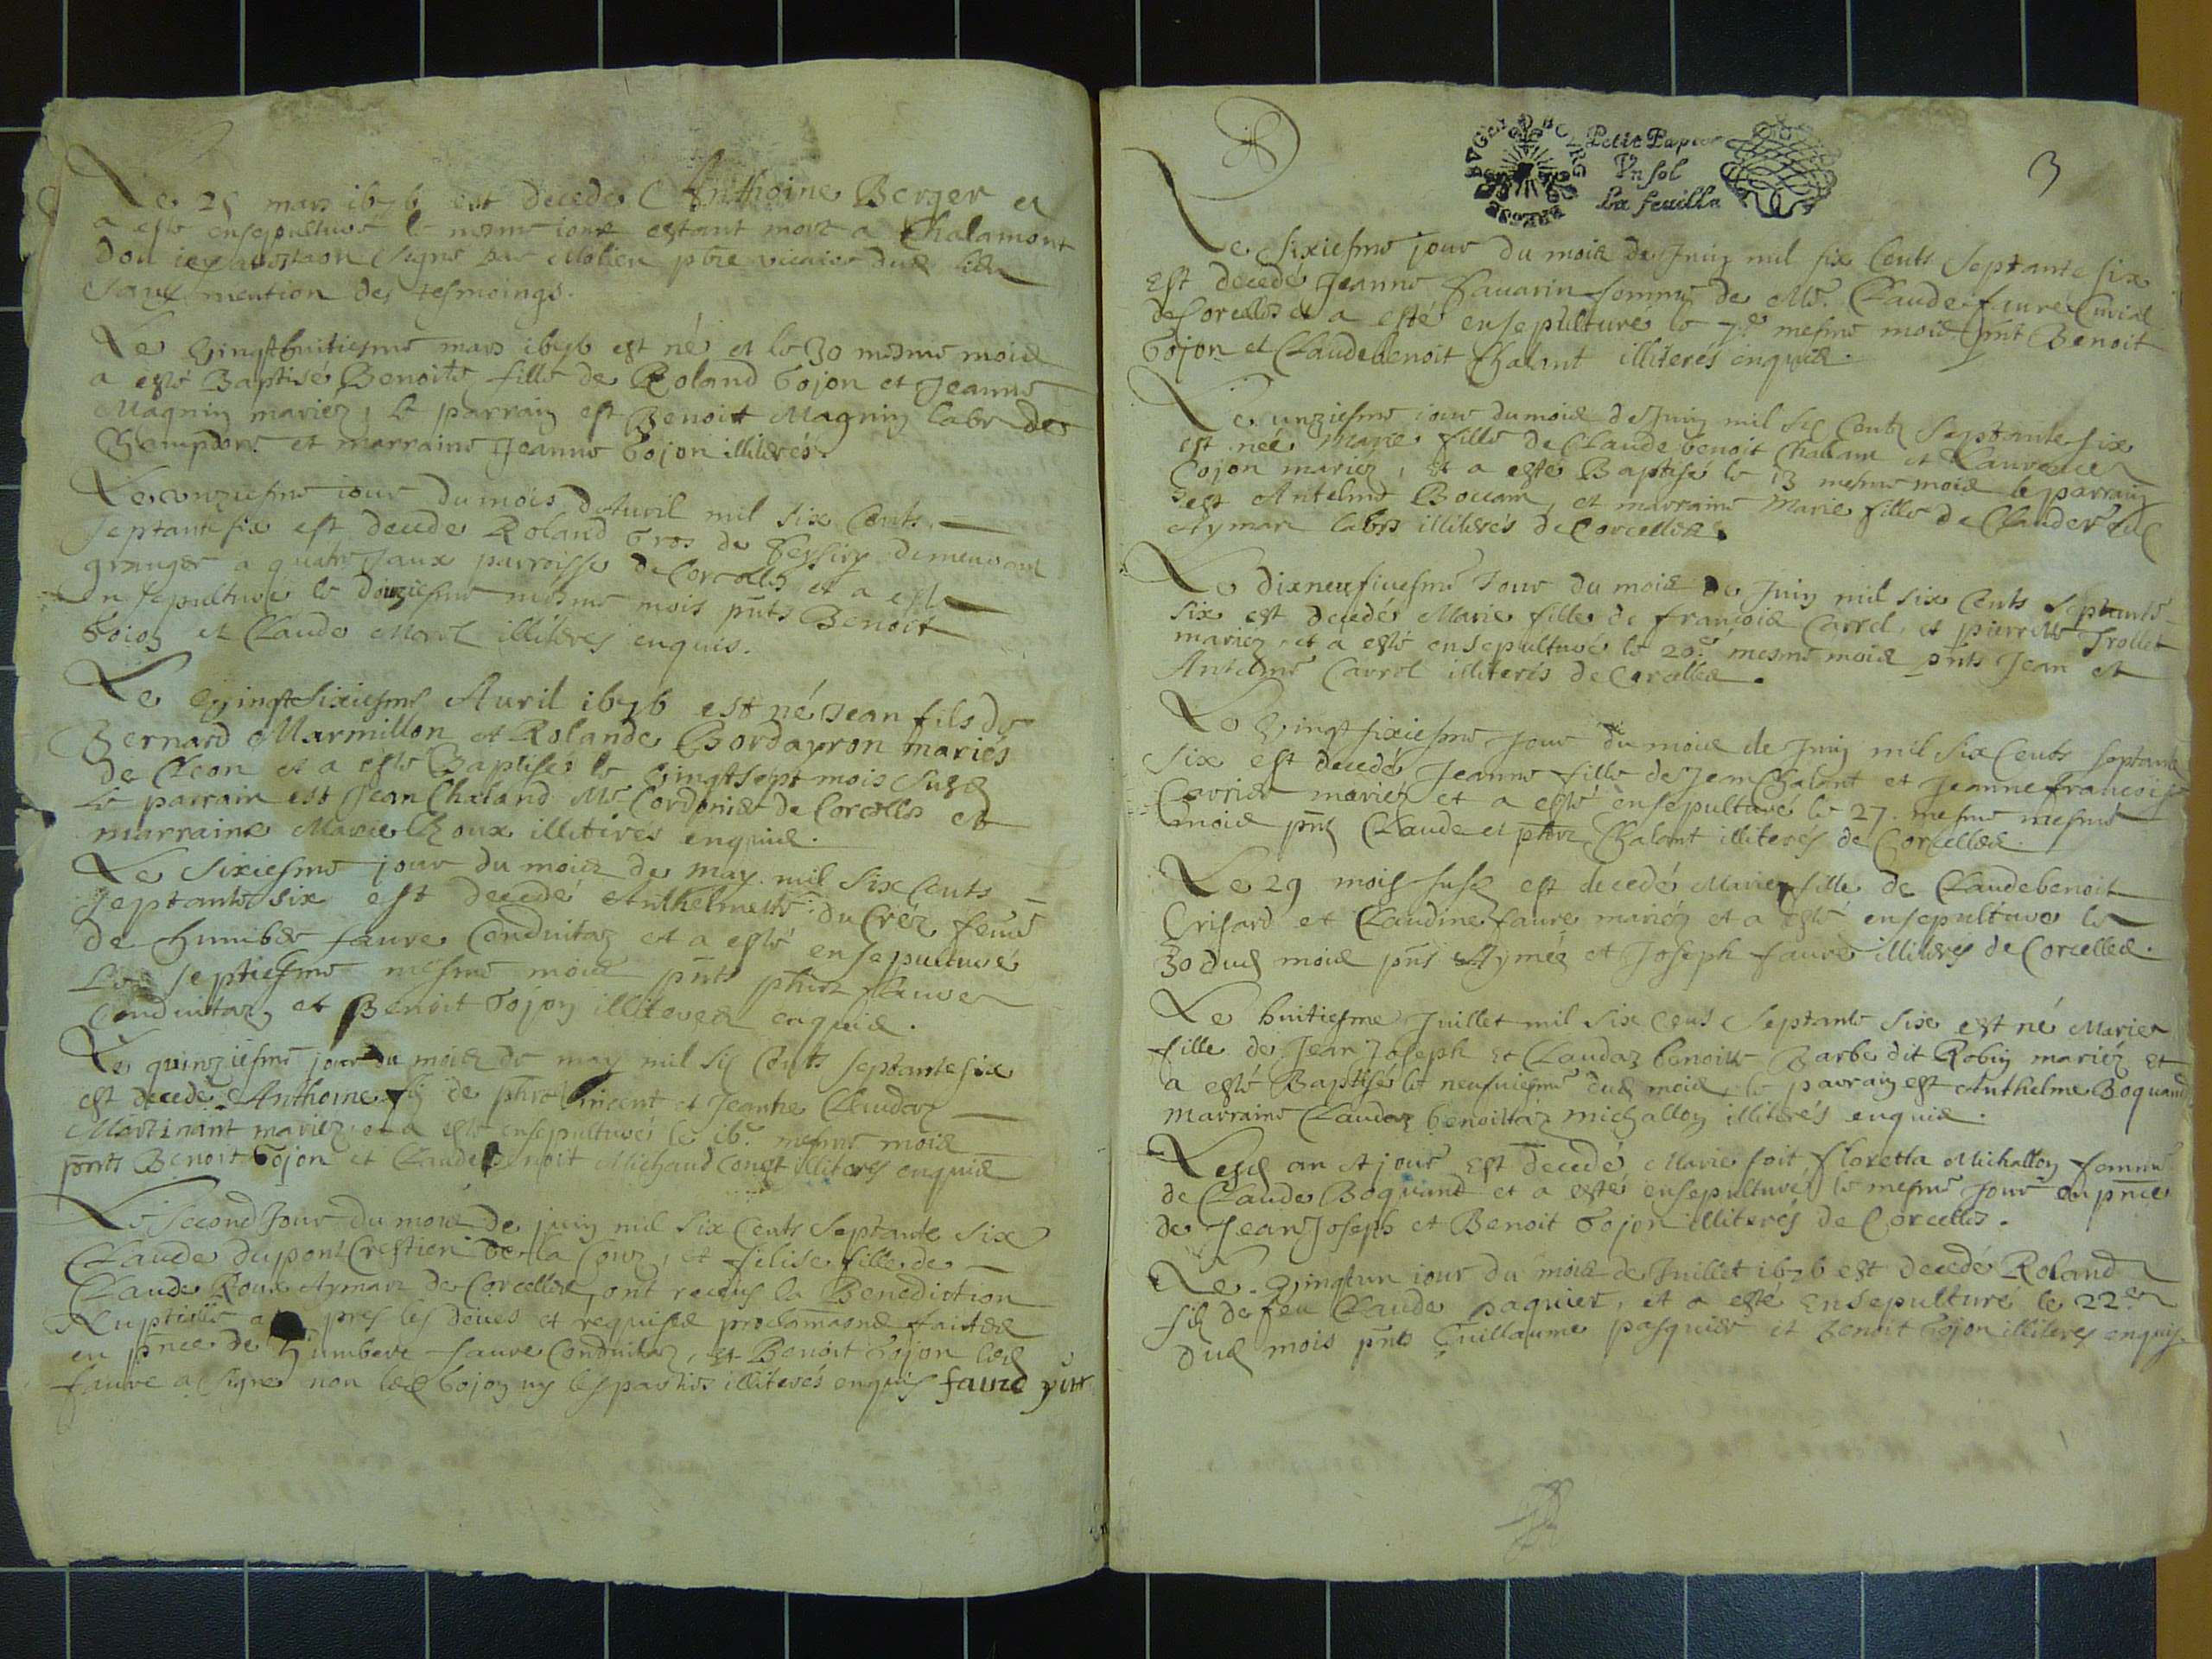 Le 25 mars 1676 est decede Anthoine Berger et
a esté ensepulturé le mesme iour estant mort a Chalamont
dou iey attestaon signe par Molien pbre vicaire dud lieu
sans mention des tesmoings.
Le vingthuitiesme mars 1676 est né et le 30 mesme mois
a esté Baptisé Benoite fille de Roland Gojon et Jeanne
Magnin mariez, le parrain est Benoit Magnin labr de
et marraine Jeanne Gojon illiterés.
Le onziesme iour du mois de Auril mil six Cents
septante six est decede Roland Gros de demeurant
granger a quatre Saux parroisse de Corcelles et a esté
ensepulturé le douziesme mesme mois pnts Benoit
Gojon et Claude Morel illiteres enquis.
Le vingt sixiesme Auril 1676 est né Jean fils de
Bernard Marmillon et Rolande Bordayron mariés
de Cleon et a esté Baptisé le vingtsept mois susd
le parrain est Jean Chaland Me Cordonier de Corcelles et
marraine Marie Roux illiterés enquis.
Le sixiesme jour du mois de may mil six Cents
septante six est decedé Anthelmette du Créz femme
de humbert faure Conduitaz et a esté ensepulturé
le septiesme mesme mois pnts phize faure
Conduitaz et Benoit Gojon illiteres enquis.
Le quinziesme jour du mois de may mil six Cents septante six
est decede Anthoine fiz de phize Vincent et Jeanne Claudaz
Martinant mariez et a esté ensepulturé le 16e mesme mois
pnts Benoit Gojon et Claude benoit Michaud illiteres enquis
Le second Jour du mois de juin mil six Cents septante six
Claude dupont Crestien de la Cour, et felise fille de
Claude Roux Aymarz de Corcelles, ont receus la Benediction
Nuptielle apres les deues et requises proclamaons faites
en pnce de humbert faure Conduitaz, et Benoit Gojon led
faure a signe non led Gojon ny les parties illiterés enquis faure
3
Petit Papier
Vn sol
La feuille
Le sixiesme jour du mois de Juin mil six Cents septante six
Est decedé Jeanne Sauarin femme de Me. Claude faure Curial
de Corcelles et a esté ensepulturé le 7.e mesme mois pnt Benoit
Gojon et Claudebenoit Chalant illiterés enquis.
Le unziesme iour du mois de Juin mil six Centz septante six
est née Marie fille de Claude benoit Chalant et Laurence
Gojon mariéz, et a esté Baptisé le 13 mesme mois le parrain
est Antelme Boccam, et marraine Marie fille de Claude
Aymarz labrs illiterés de Corcelles.
Le dixneufiuesme Jour du mois de Juin mil six Cents septante
six est decedé Marie fille de françois Carrel, et pierrette Trollet
mariez, et a esté ensepulturé le 20.e mesme mois pnts Jean et
Antelme Carrel illiterés de Corcelles.
Le vingt sixiesme Jour du mois de Juin mil six Cents septante
six est decedé Jeanne fille de Jean Chalant et Jeanne françoise
Carrier mariéz et a esté ensepulturé le 27. mesme mesme
mois pnts Claude et phize Chalant illiterés de Corcelles.
Le 29 mois susd est decedé Marie fille de Claudebenoit
Crisard et Claudine faure mariéz et a esté ensepulturé le
30 dud mois pnts Aymé et Joseph faure illiterés de Corcelles.
Le huitiesme Juillet mil six Cens septante six est né Marie
fille de Jean Joseph et Claudaz benoitte Barbe dit Robin mariéz et
a esté Baptisé le neufuiesme dud mois, le parrain est Anthelme Boquand
Marraine Claudaz benoittaz michallon illiterés enquis.
Lesd an et jour Est decedé Marie foit floretta Michallon femme
de Claude Boquand et a esté ensepulturé le mesme Jour en pnce
de Jean Joseph et Benoit Gojon illiterés de Corcelles.
Le vingtun iour du mois de Juillet 1676 est decedé Roland
fiz de feu Claude paquier, et a esté Ensepulturé le 22.e
dud mois pnts Guillaume pasquier et Benoit Gojon illiterés enquis.